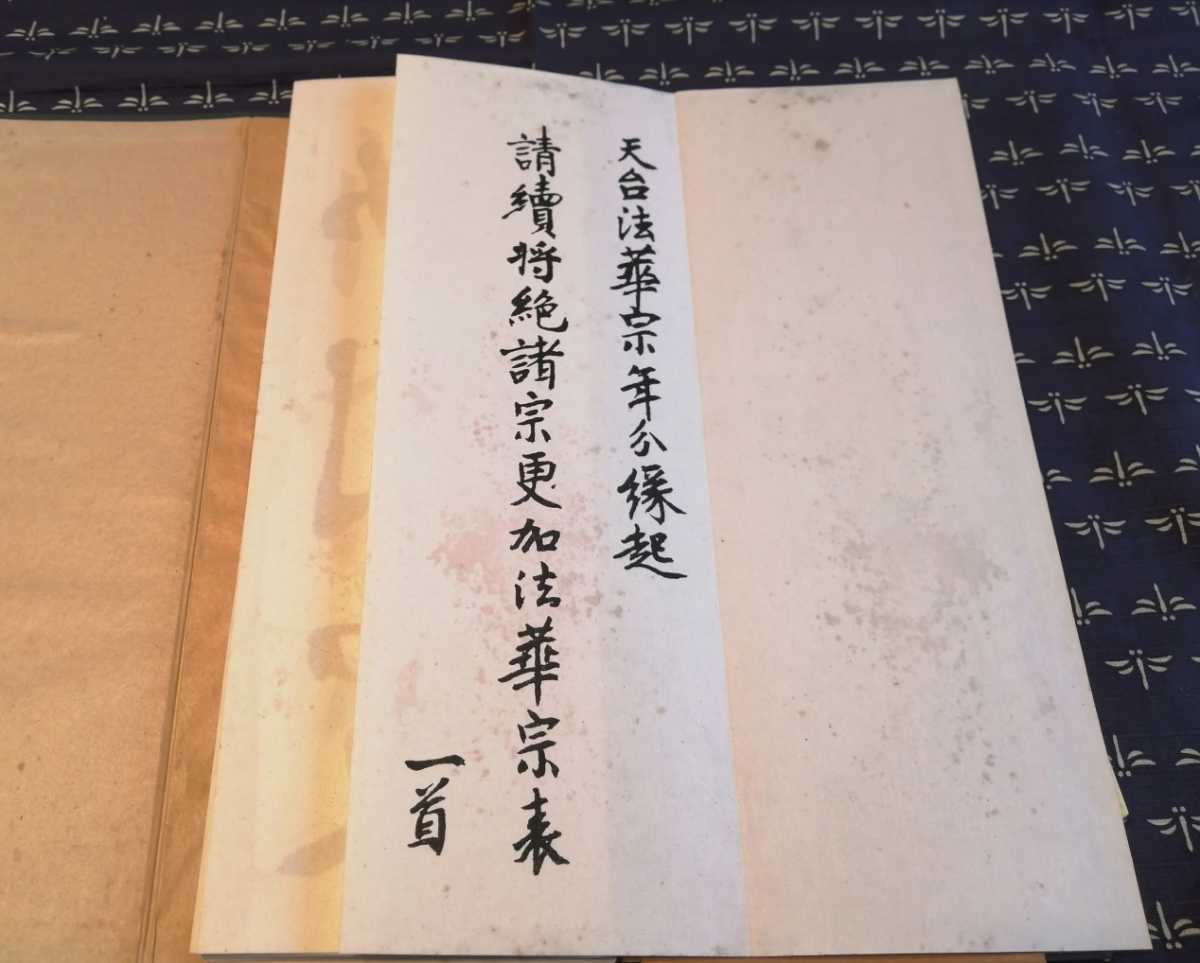 天台法華宗年分縁起
請續將絶諸宗更加法華宗表
一首